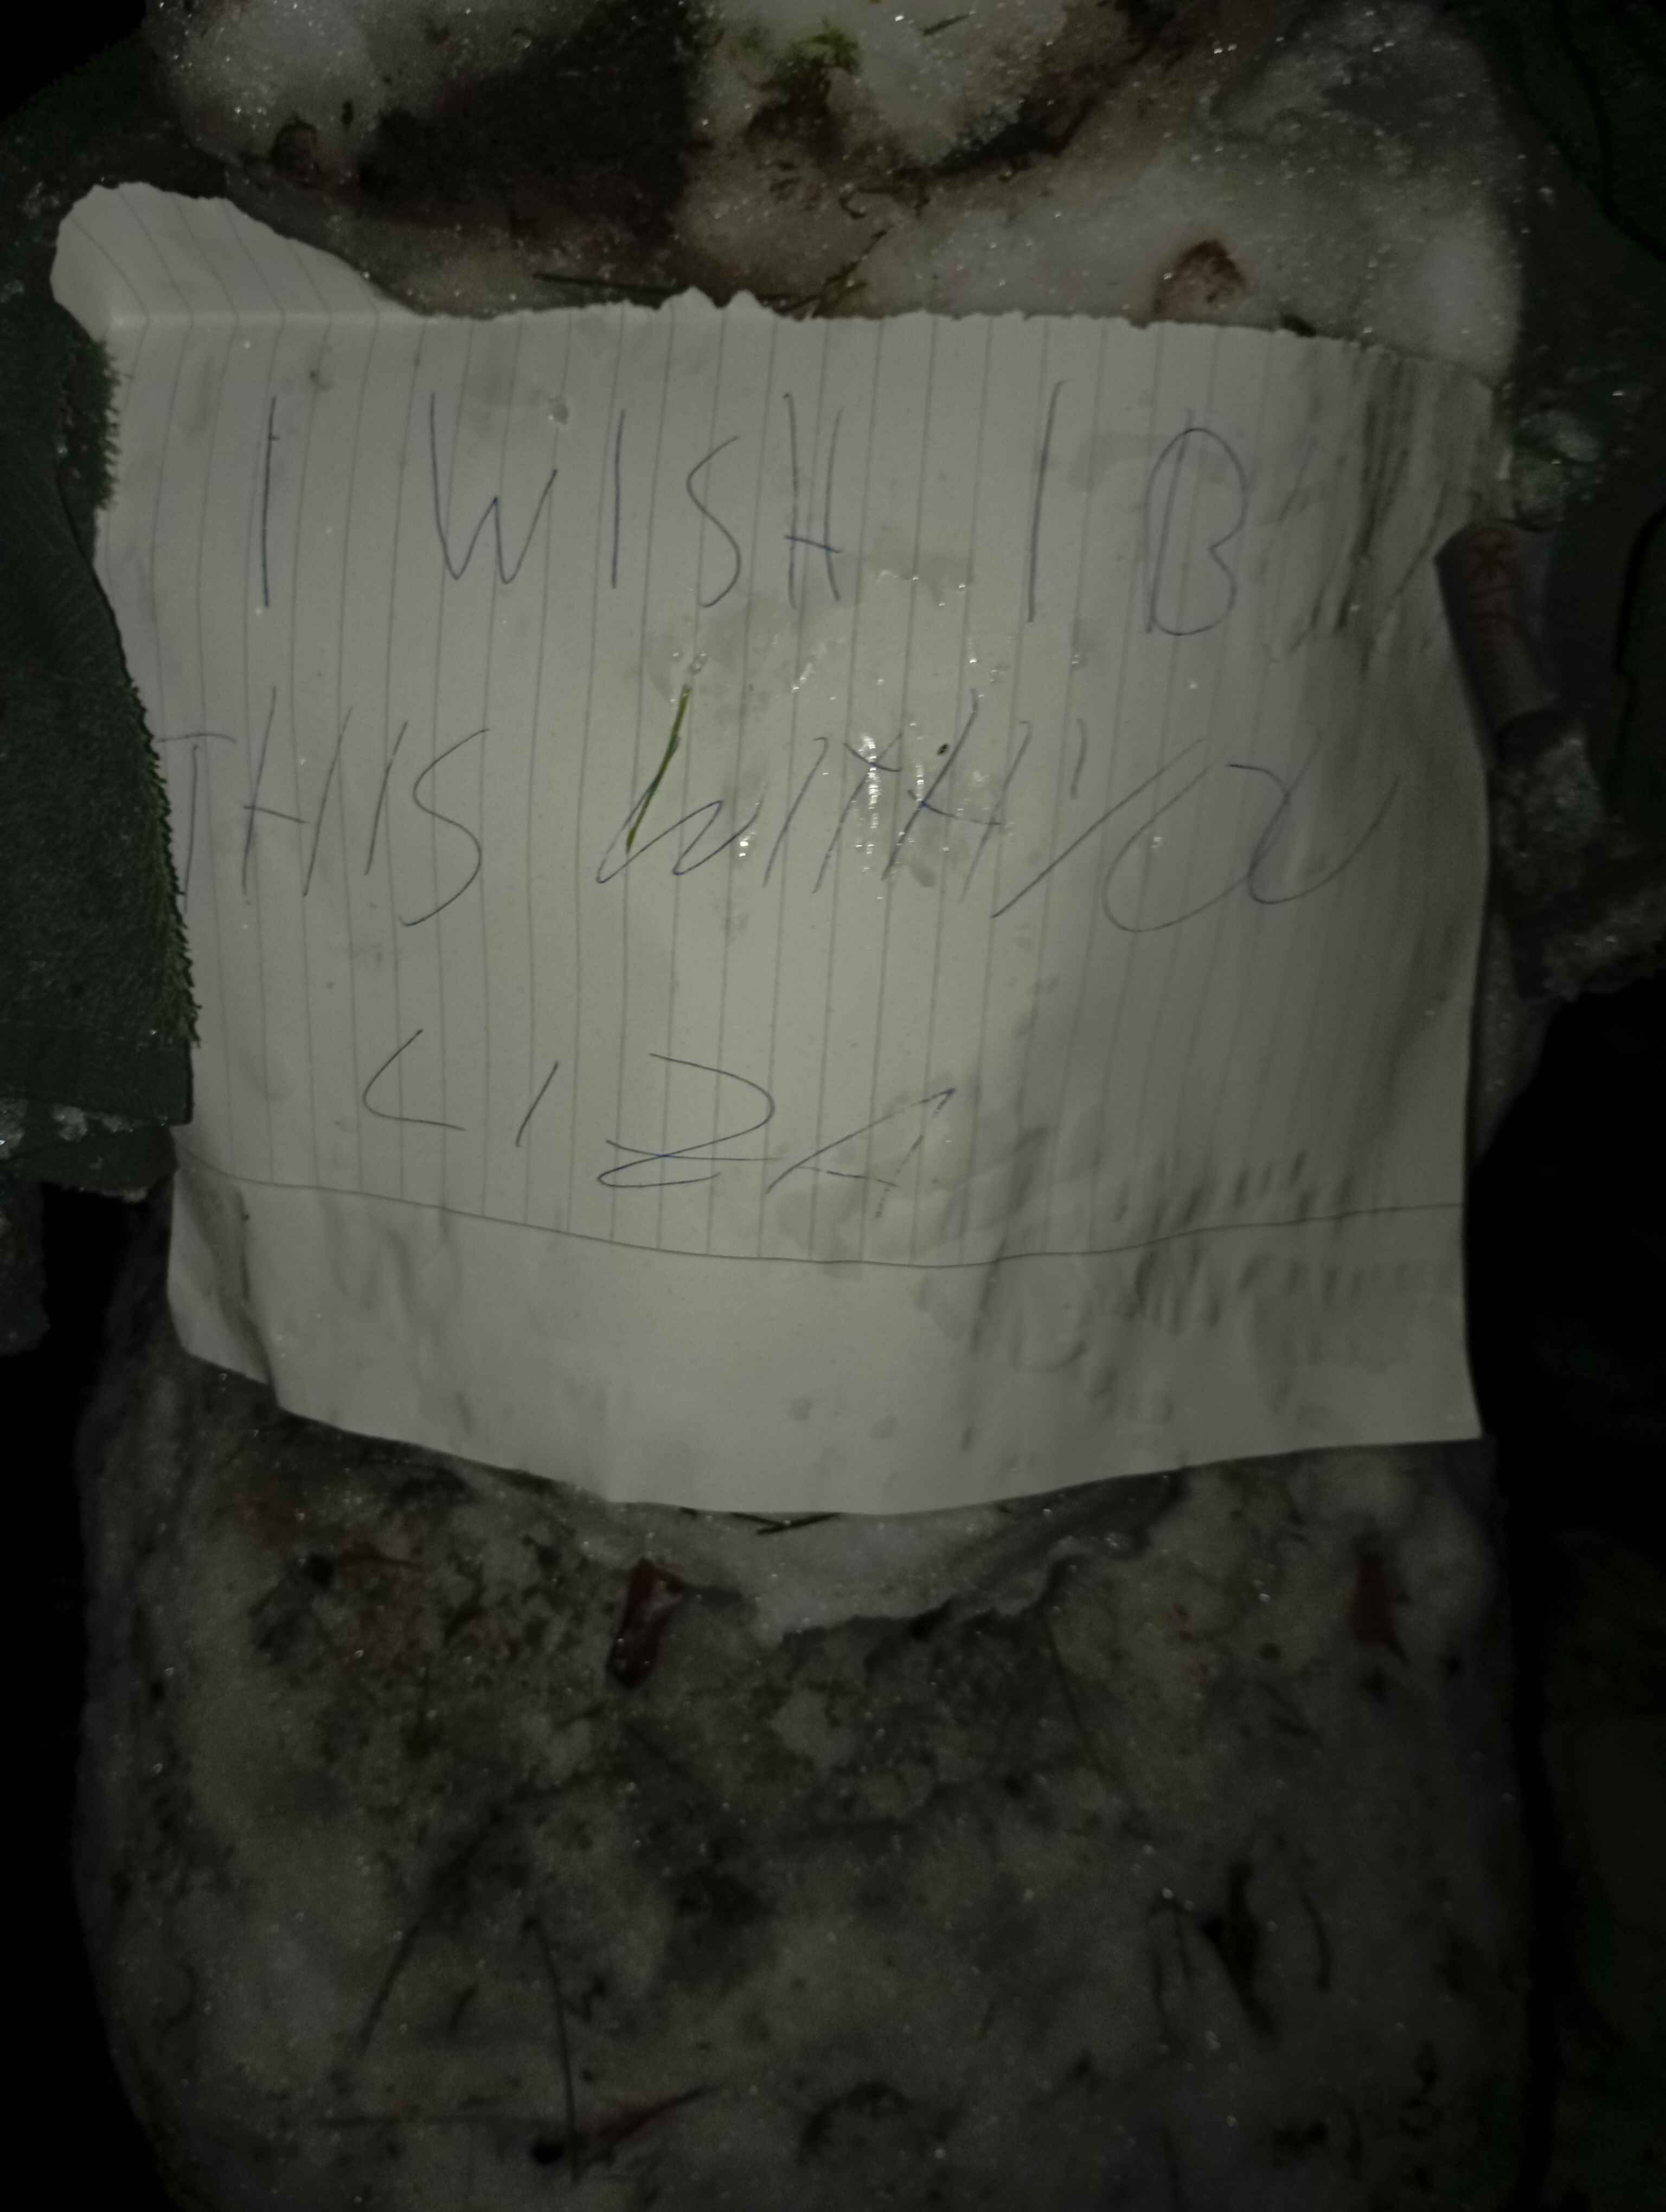 I WISH I B
THIS WITH YOU
LIZA